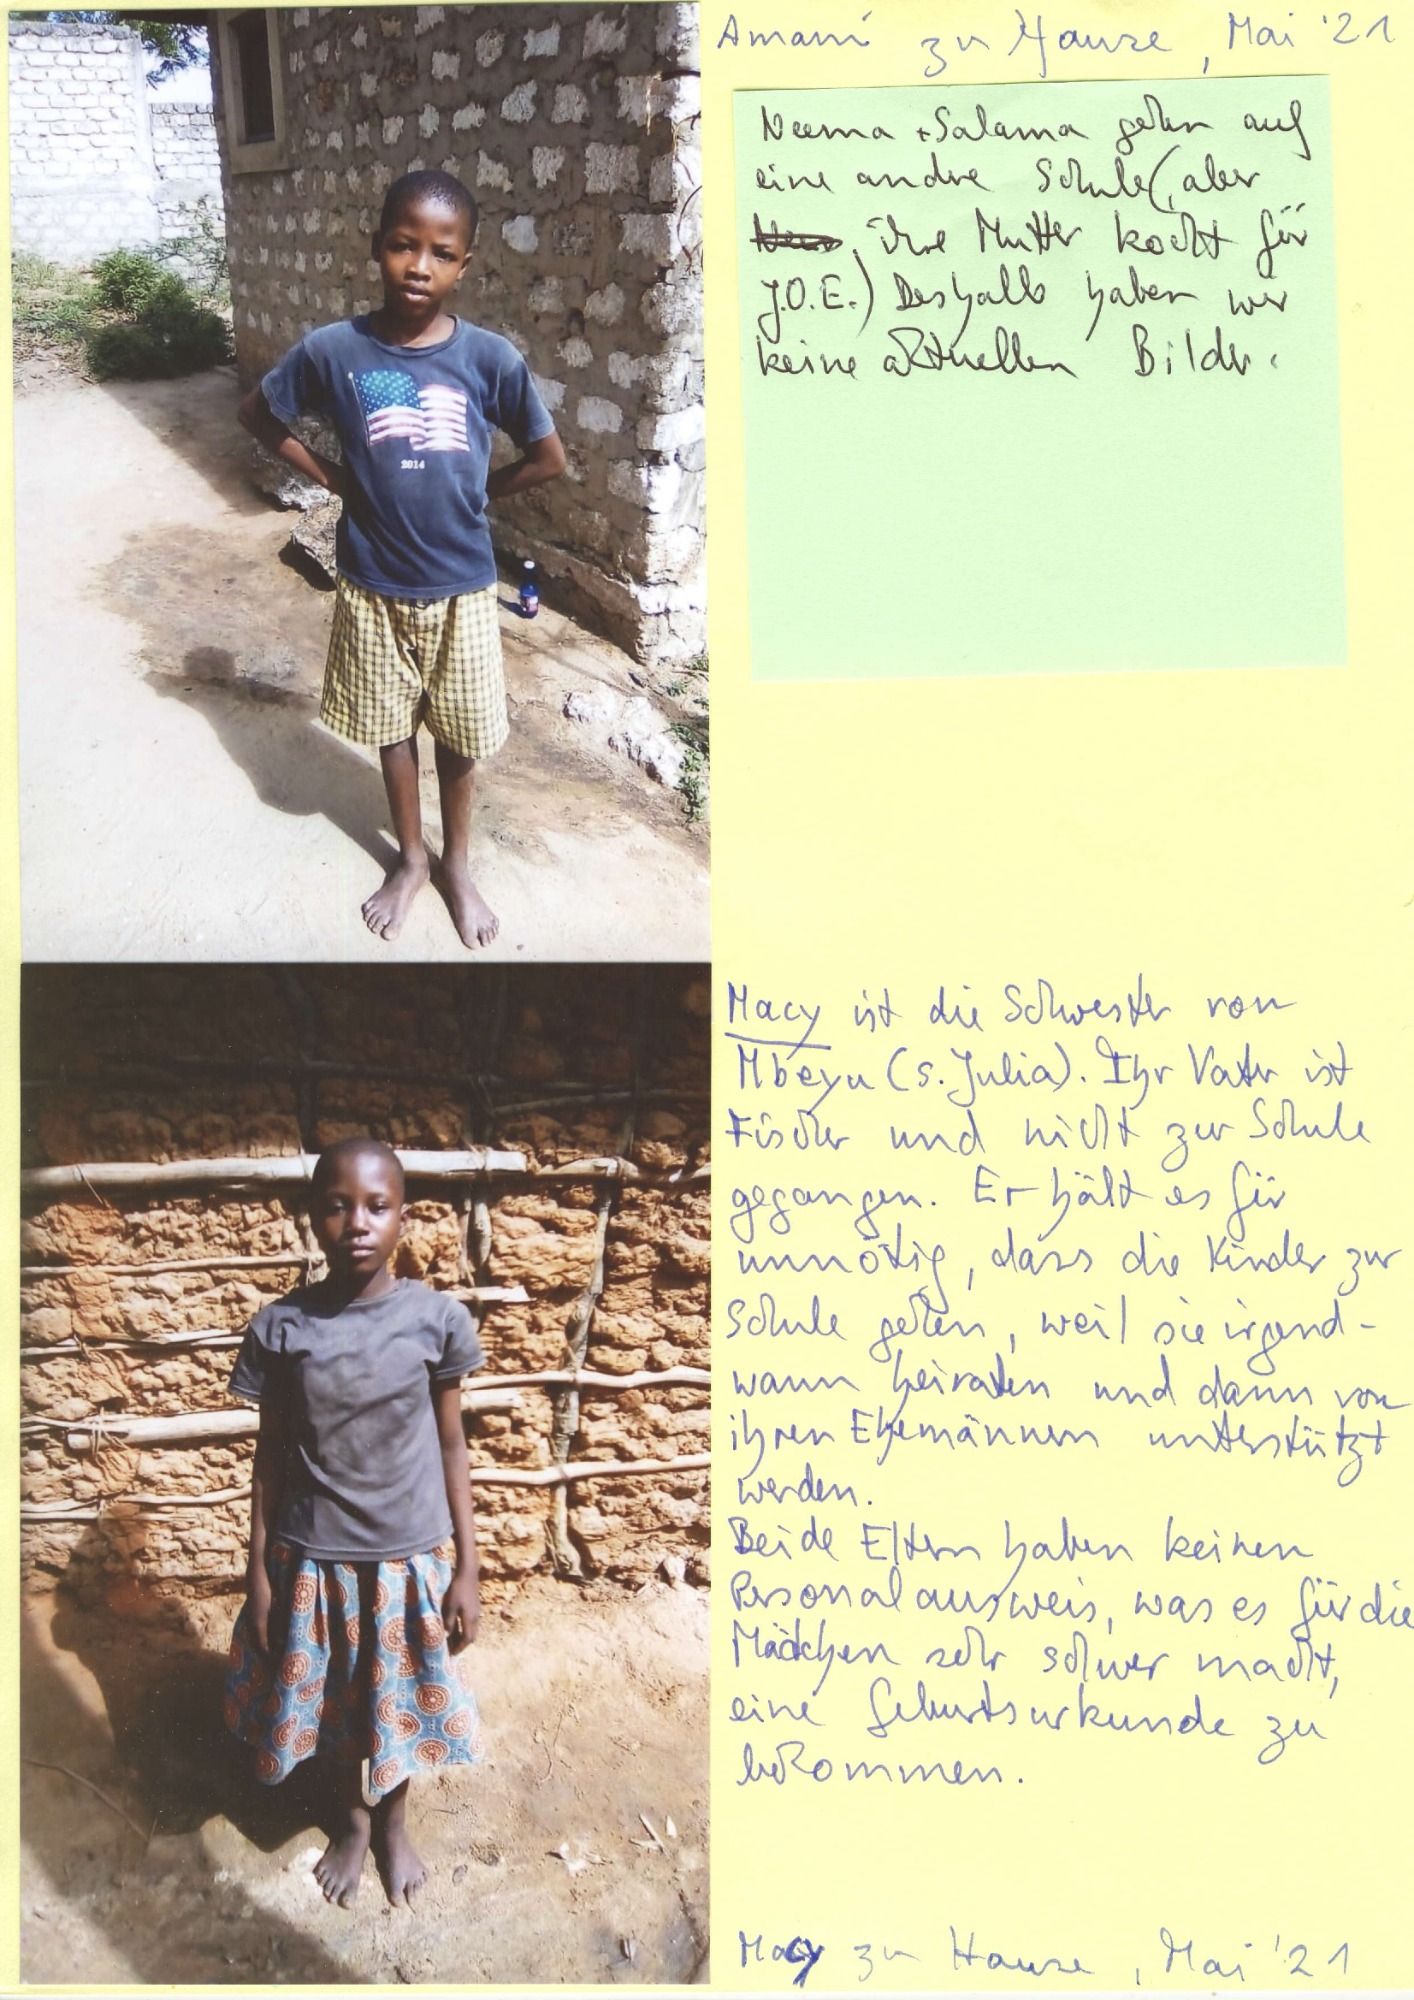 Amani zu Hause, Mai '21
Neema + Salama gehen auf
eine andre Schule (, aber
ihre Mutter kocht für
J.O.E.) Deshalb haben wir
keine aktuellen Bilder.
2014
Macy ist die Schwester von
Mbeyu (s. Julia). Ihr Vater ist
Fischer und nicht zur Schule
gegangen. Er hält es für
unnötig, dass die Kinder zur
Schule gehen, weil sie irgend-
wann heiraten und dann von
ihren Ehemännern unterstützt
werden.
Beide Eltern haben keinen
Personalausweis, was es für die
Mädchen sehr schwer macht,
eine Geburtsurkunde zu
bekommen.
Macy zu Hause, Mai '21